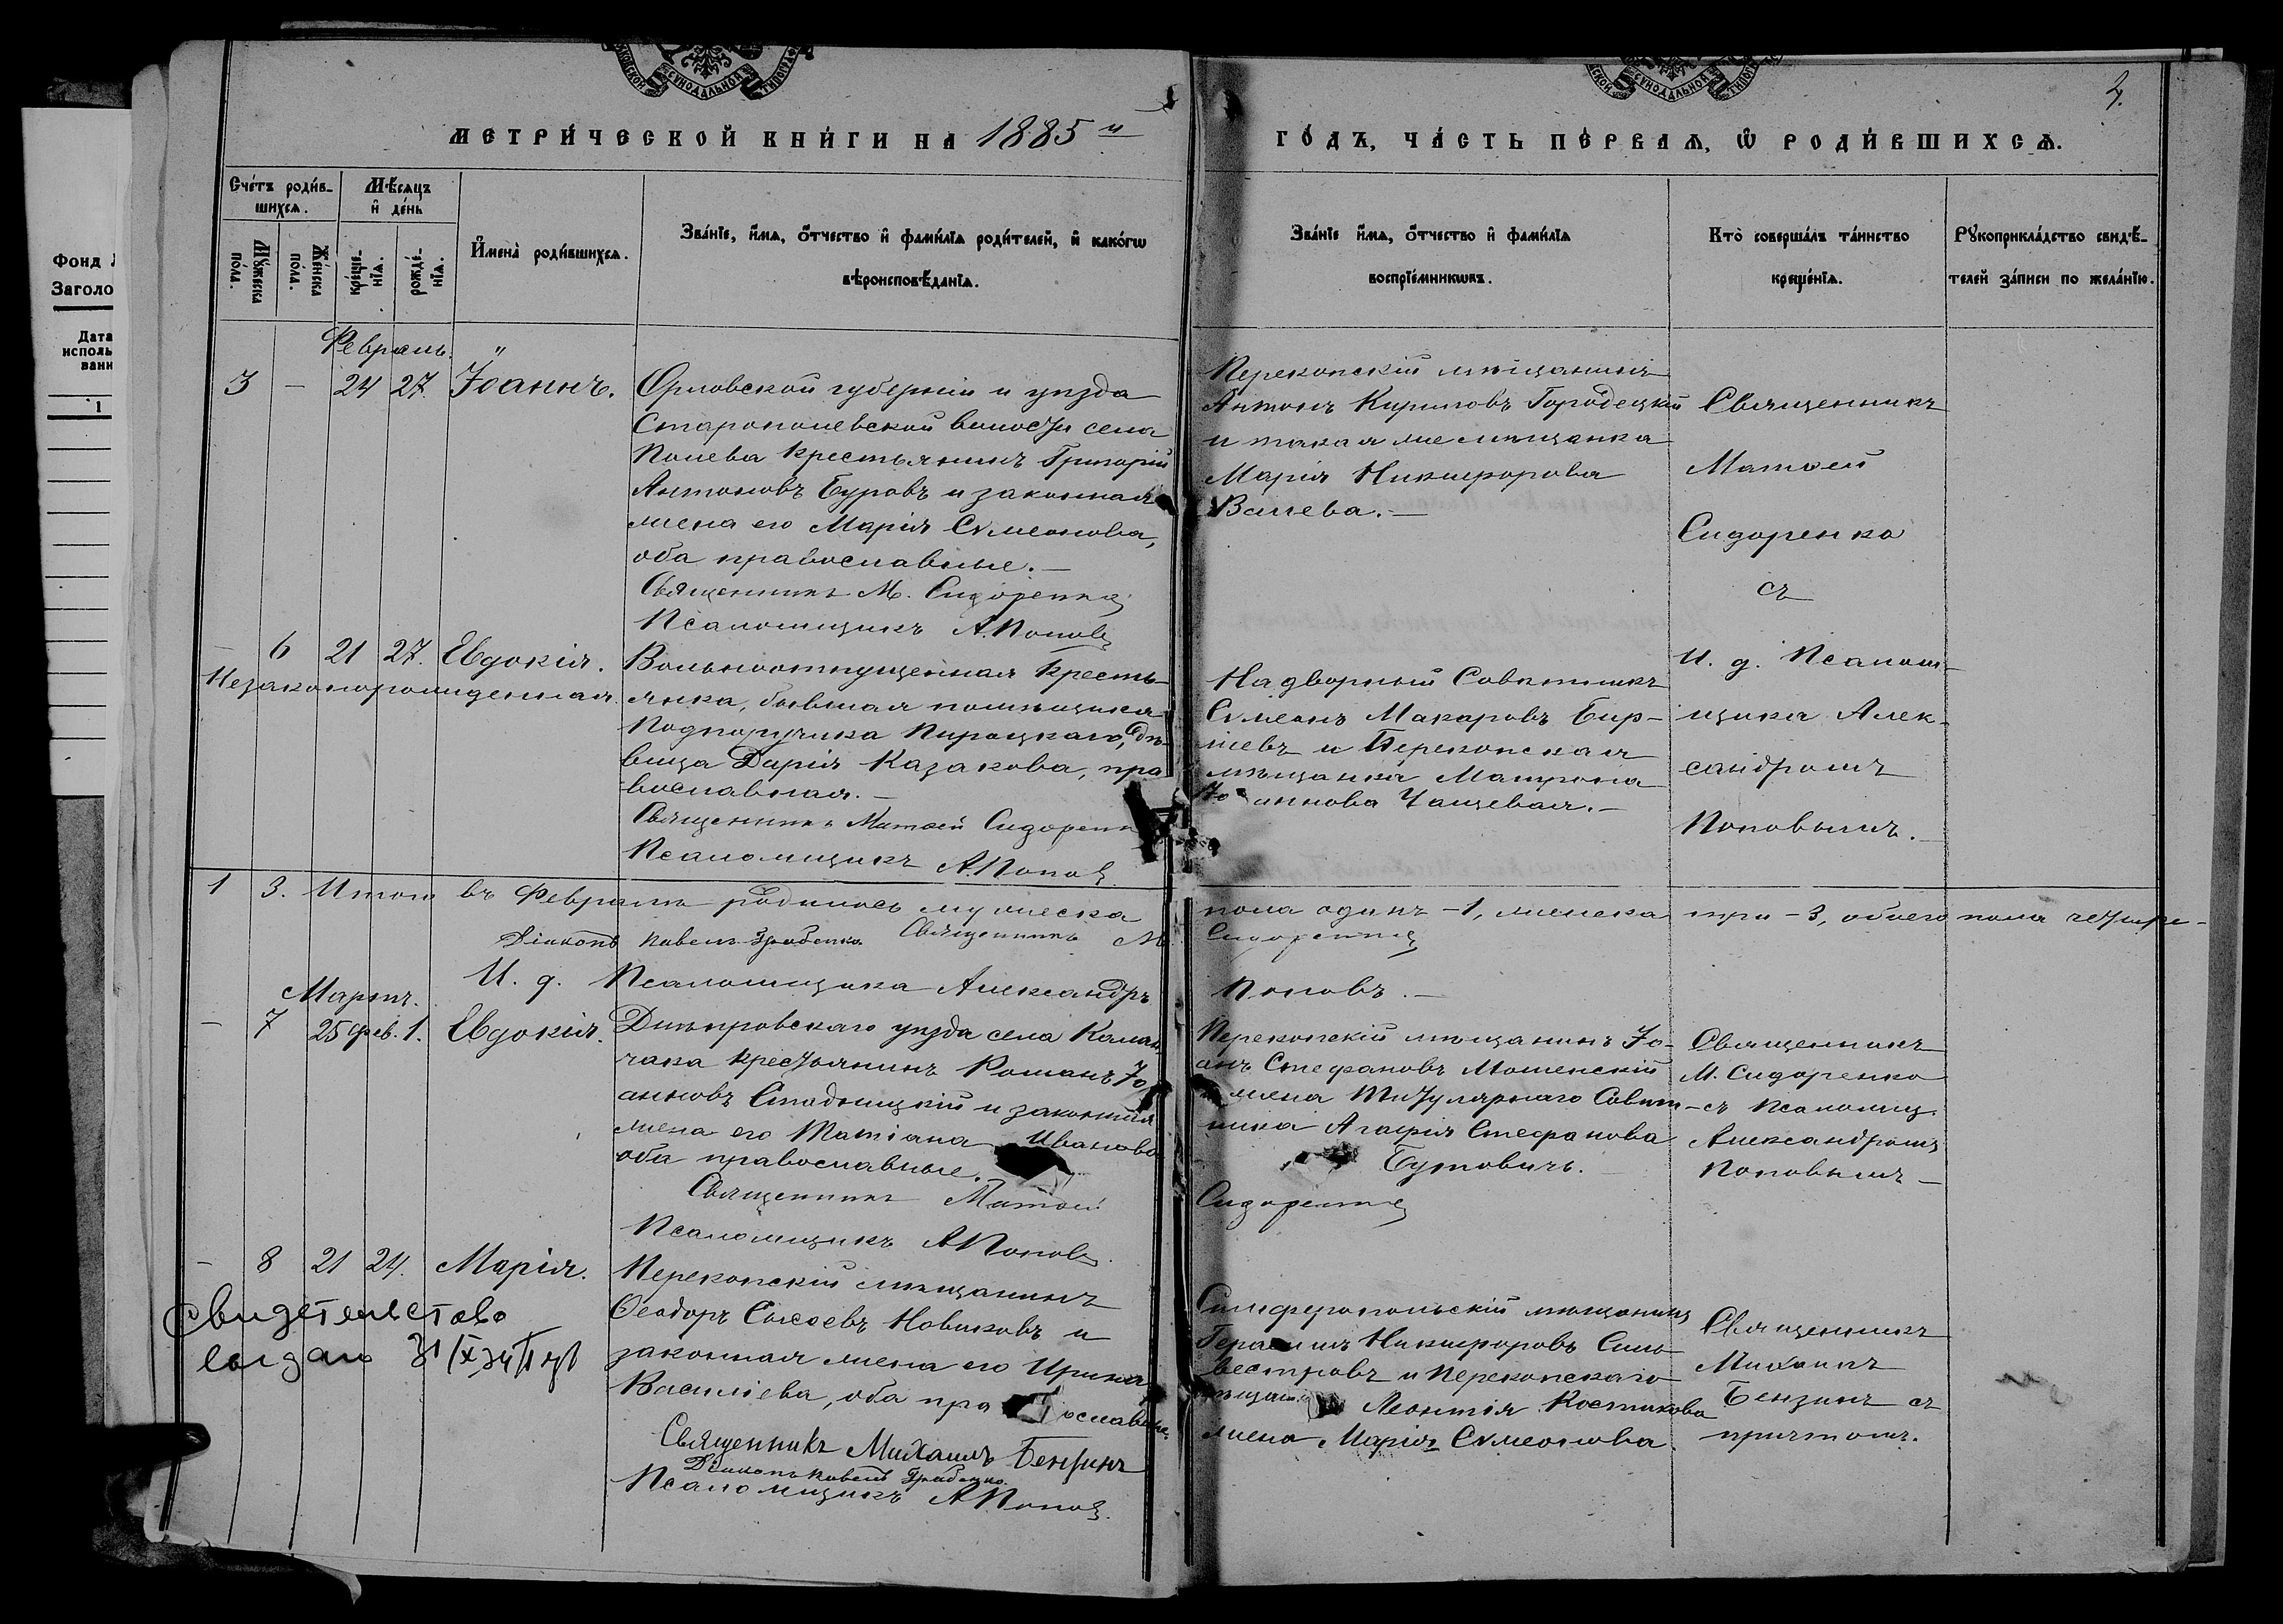 Фонд
Заголо
Дата
исполь
вани
1
МОСКОВСКОЙ СѴНОДАЛЬНОЙ ТИПОГРАФ
СКОЙ СѴНОДАЛЬНОЙ ТИПОГРАФ
МЕТРИ́ЧЕСКОЙ КНИ́ГИ НА 1885 й
ГО́ДЪ, ЧА́СТЬ ПЕ́РВАѦ, Ѡ РОДИ́ВШИХСѦ.
Сче́тъ роди́в-
шихсѧ.
Мѣ́сѧцъ
и де́нь
Мꙋ́жеска
по́ла.
Же́нска
по́ла.
креще́-
нїѧ.
рожде́-
нїѧ.
Имена̀ роди́вшихсѧ.
Зва́нїе, и́мѧ, о́тчество и фами́лїѧ роди́телей, и како́гѡ
вѣроисповѣ́данїѧ.
Зва́нїе и́мѧ, о́тчество и фами́лїѧ
воспрїе́мникѡвъ.
Кто̀ соверша́лъ та́инство
креще́нїѧ.
Рꙋкоприкла́дство свидѣ́-
телей за́писи по жела́нїю.
Февраль.
3 — 24 27 Іоаннъ.
Орловской губерніи и уѣзда
Старополевской волости села
Полева крестьянинъ Григорій
Антоновъ Буровъ и законная
жена его Марія Сѵмеонова,
оба православные.—
Священникъ М. Сидоренко
Псаломщикъ А. Поповъ
Перекопскій мѣщанинъ
Антонъ Кириловъ Городецкій
и такая же мѣщанка
Марія Никифорова
Валева.—
Священникъ
Матѳей
Сидоренко
съ
И. д. Псалом-
щика Алек-
сандромъ
Поповымъ.
— 6 21 27. Евдокія.
Незаконорожденная.
Вольноотпущенная кресть-
янка, бывшая помѣщика
Подпоручика Пироцкаго, дѣ-
вица Дарія Казакова, пра
вославная.—
Священникъ Матѳей Сидоренк
Псаломщикъ А. Поповъ
Надворный Совѣтникъ
Сѵмеонъ Макаровъ Бир-
жіевъ и Перекопская
мѣщанка Матрона
Іоаннова Чащевая.—
1 3. Итого въ Февралѣ родилось мужеска
пола одинъ -1, женска три -3, обоего пола четыре-
Діаконъ Павелъ Грабенко Священникъ М.
Сидоренко
И. д. Псаломщика Александръ
Поповъ.—
Мартъ.
— 7 25 фев. 1. Евдокія.
Днѣпровскаго уѣзда села Калан
чака крестьянинъ Романъ Іо
анновъ Стадницкій и законная
жена его Татіана Иванова
оба православные.
Священникъ Матѳей
Псаломщикъ А Поповъ.
Перекопскій мѣщанинъ Іо-
анъ Стефановъ Мошенскій
и жена Титулярнаго Совѣт-
ника Агафія Стефанова
Бутовичъ.
Сидоренко
Священникъ
М. Сидоренко
съ Псаломщ.
Александромъ
Поповымъ—
— 8 21 24. Марія.
свидетельство
Перекопскій мѣщанинъ
Ѳеодоръ Сысоевъ Новиковъ и
законная жена его Ирина
Василіева, оба пра ославные.
Священникъ Михаилъ Бензинъ
Діаконъ Павелъ Грабенко.
Псаломщикъ А. Поповъ.
Симферопольскій мѣщанинъ
Герасимъ Никифоровъ Силь
вестровъ и Перекопскаго
мѣщан Леонтія Костикова
жена Марія Сѵмеонова.
Священникъ
Михаилъ
Бензинъ съ
причтомъ.